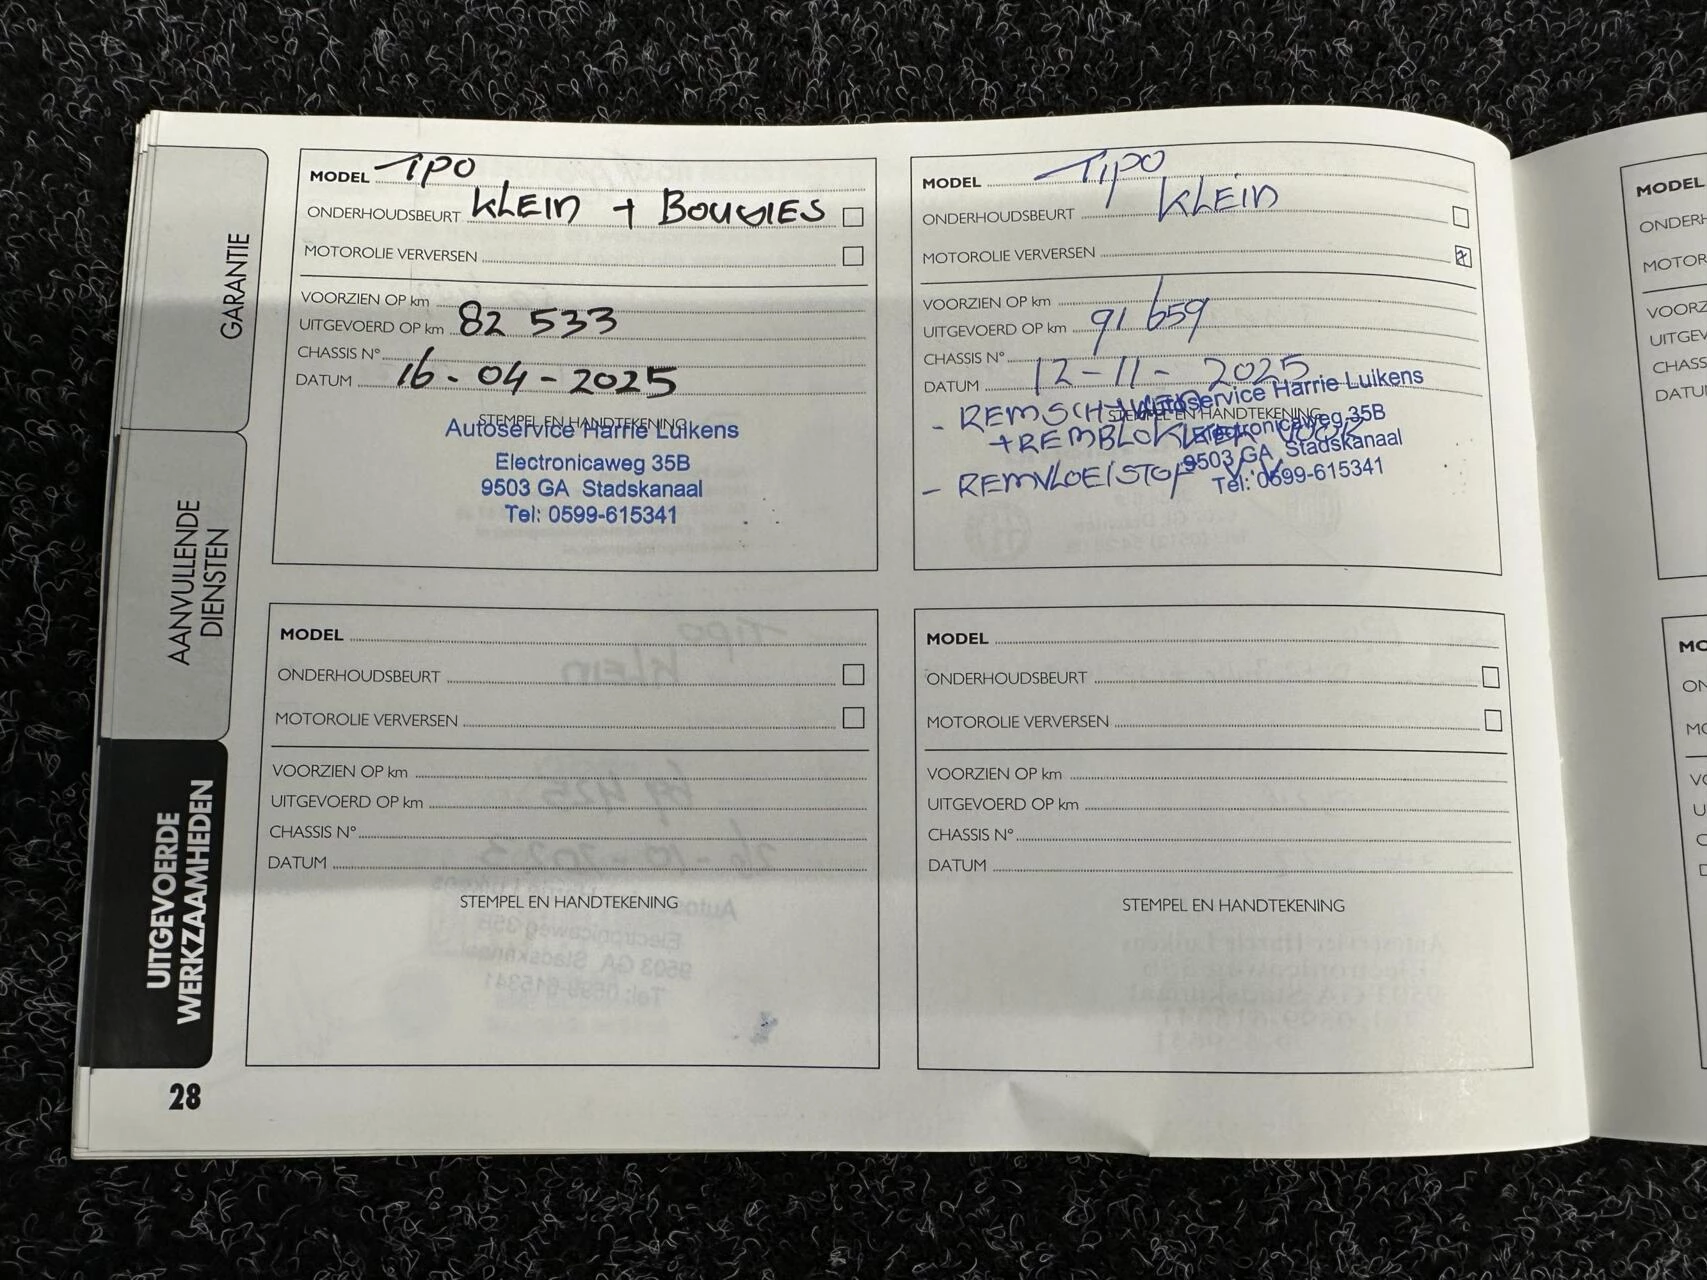 GARANTIE
AANVULLENDE
DIENSTEN
UITGEVOERDE
WERKZAAMHEDEN
28
MODEL TIPO
ONDERHOUDSBEURT KLEIN + BOUGIES
MOTOROLIE VERVERSEN
VOORZIEN OP km
UITGEVOERD OP km 82 533
CHASSIS N°
DATUM 16-04-2025
STEMPEL EN HANDTEKENING
Autoservice Harrie Luikens
Electronicaweg 35B
9503 GA Stadskanaal
Tel: 0599-615341
MODEL TIPO
ONDERHOUDSBEURT KLEIN
MOTOROLIE VERVERSEN
VOORZIEN OP km
UITGEVOERD OP km 91 659
CHASSIS N°
DATUM 12-11-2025
STEMPEL EN HANDTEKENING
- REMSCHIJVEN
+ REMBLOKKEN VOOR
- REMVLOEISTOF
Autoservice Harrie Luikens
Electronicaweg 35B
9503 GA Stadskanaal
Tel: 0599-615341
MODEL
ONDERHOUDSBEURT
MOTOROLIE VERVERSEN
VOORZIEN OP km
UITGEVOERD OP km
CHASSIS N°
DATUM
STEMPEL EN HANDTEKENING
MODEL
ONDERHOUDSBEURT
MOTOROLIE VERVERSEN
VOORZIEN OP km
UITGEVOERD OP km
CHASSIS N°
DATUM
STEMPEL EN HANDTEKENING
MODEL
ONDERH
MOTOR
VOORZ
UITGEV
CHASS
DATU
MO
ON
MO
VO
U
C
D